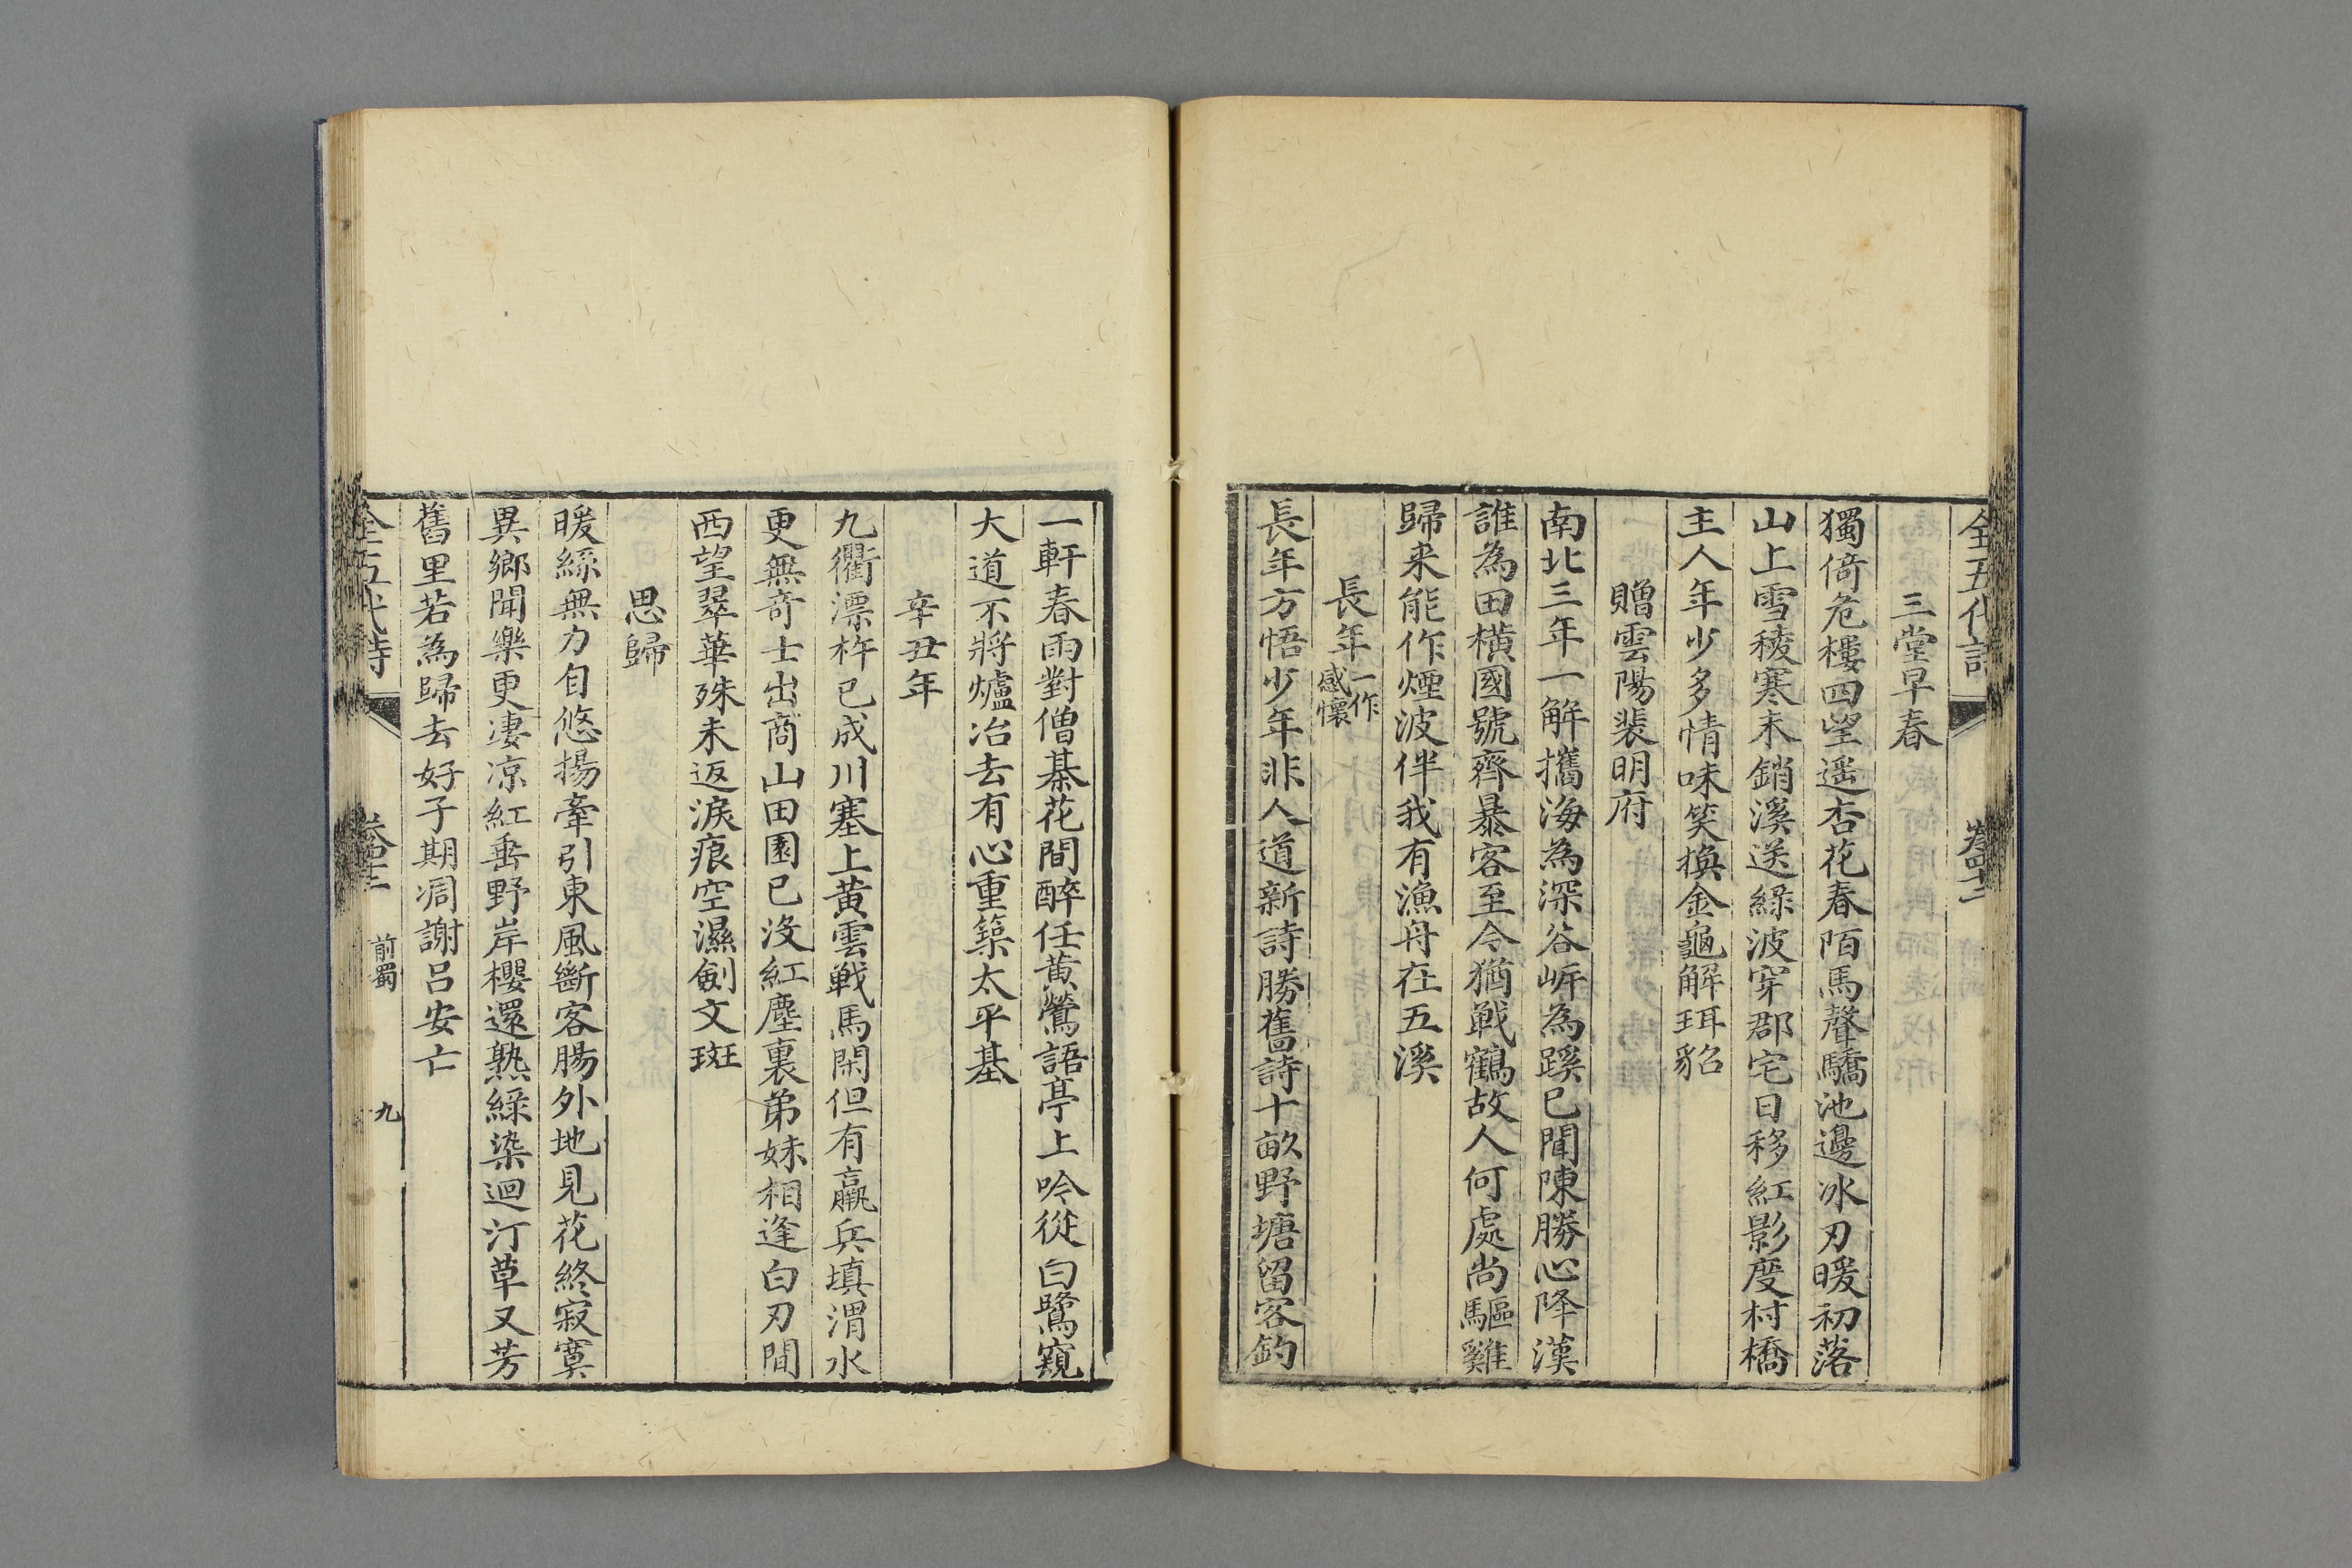 全五代詩
三堂早春
獨倚危樓四望遥杏花春陌馬聲驕池邊冰刃暖初落
山上雪稜寒未銷溪送緑波穿郡宅日移紅影度村橋
主人年少多情味笑換金龜解珥貂
贈雲陽裴明府
南北三年一解攜海為深谷岸為蹊已聞陳勝心降漢
誰為田橫國號齊暴客至今猶戰鶴故人何處尚驅雞
歸来能作煙波伴我有漁舟在五溪
長年一作感懷
長年方悟少年非人道新詩勝舊詩十畝野塘留客釣
一軒春雨對僧碁花間醉任黄鶯語亭上吟從白鷺窺
大道不將爐冶去有心重築太平基
辛丑年
九衢漂杵已成川塞上黄雲戰馬閑但有羸兵填渭水
更無奇士出商山田園已没紅塵裏弟妹相逢白刃間
西望翠華殊未返淚痕空濕劍文斑
思歸
暖絲無力自悠揚牽引東風斷客腸外地見花終寂寞
異鄉聞樂更凄凉紅垂野岸櫻還熟緑染迴汀草又芳
舊里若為歸去好子期凋謝吕安亡
全五代詩 前蜀 九